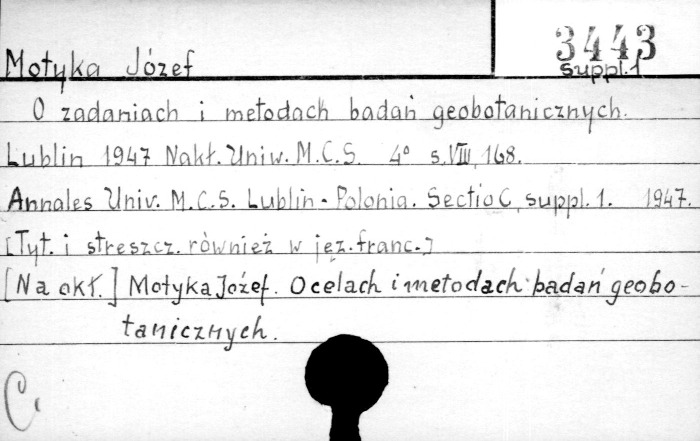 3443
Motyka Józef suppl.1
O zadaniach i metodach badań geobotanicznych.
Lublin 1947 Nakł. Uniw. M.C.S. 4° s.VIII, 168.
Annales Univ. M.C.S. Lublin - Polonia. Sectio C, suppl. 1. 1947.
[Tyt. i streszcz. również w jęz. franc.]
[Na okł.] Motyka Józef. O celach i metodach badań geobo-
tanicznych.
C.